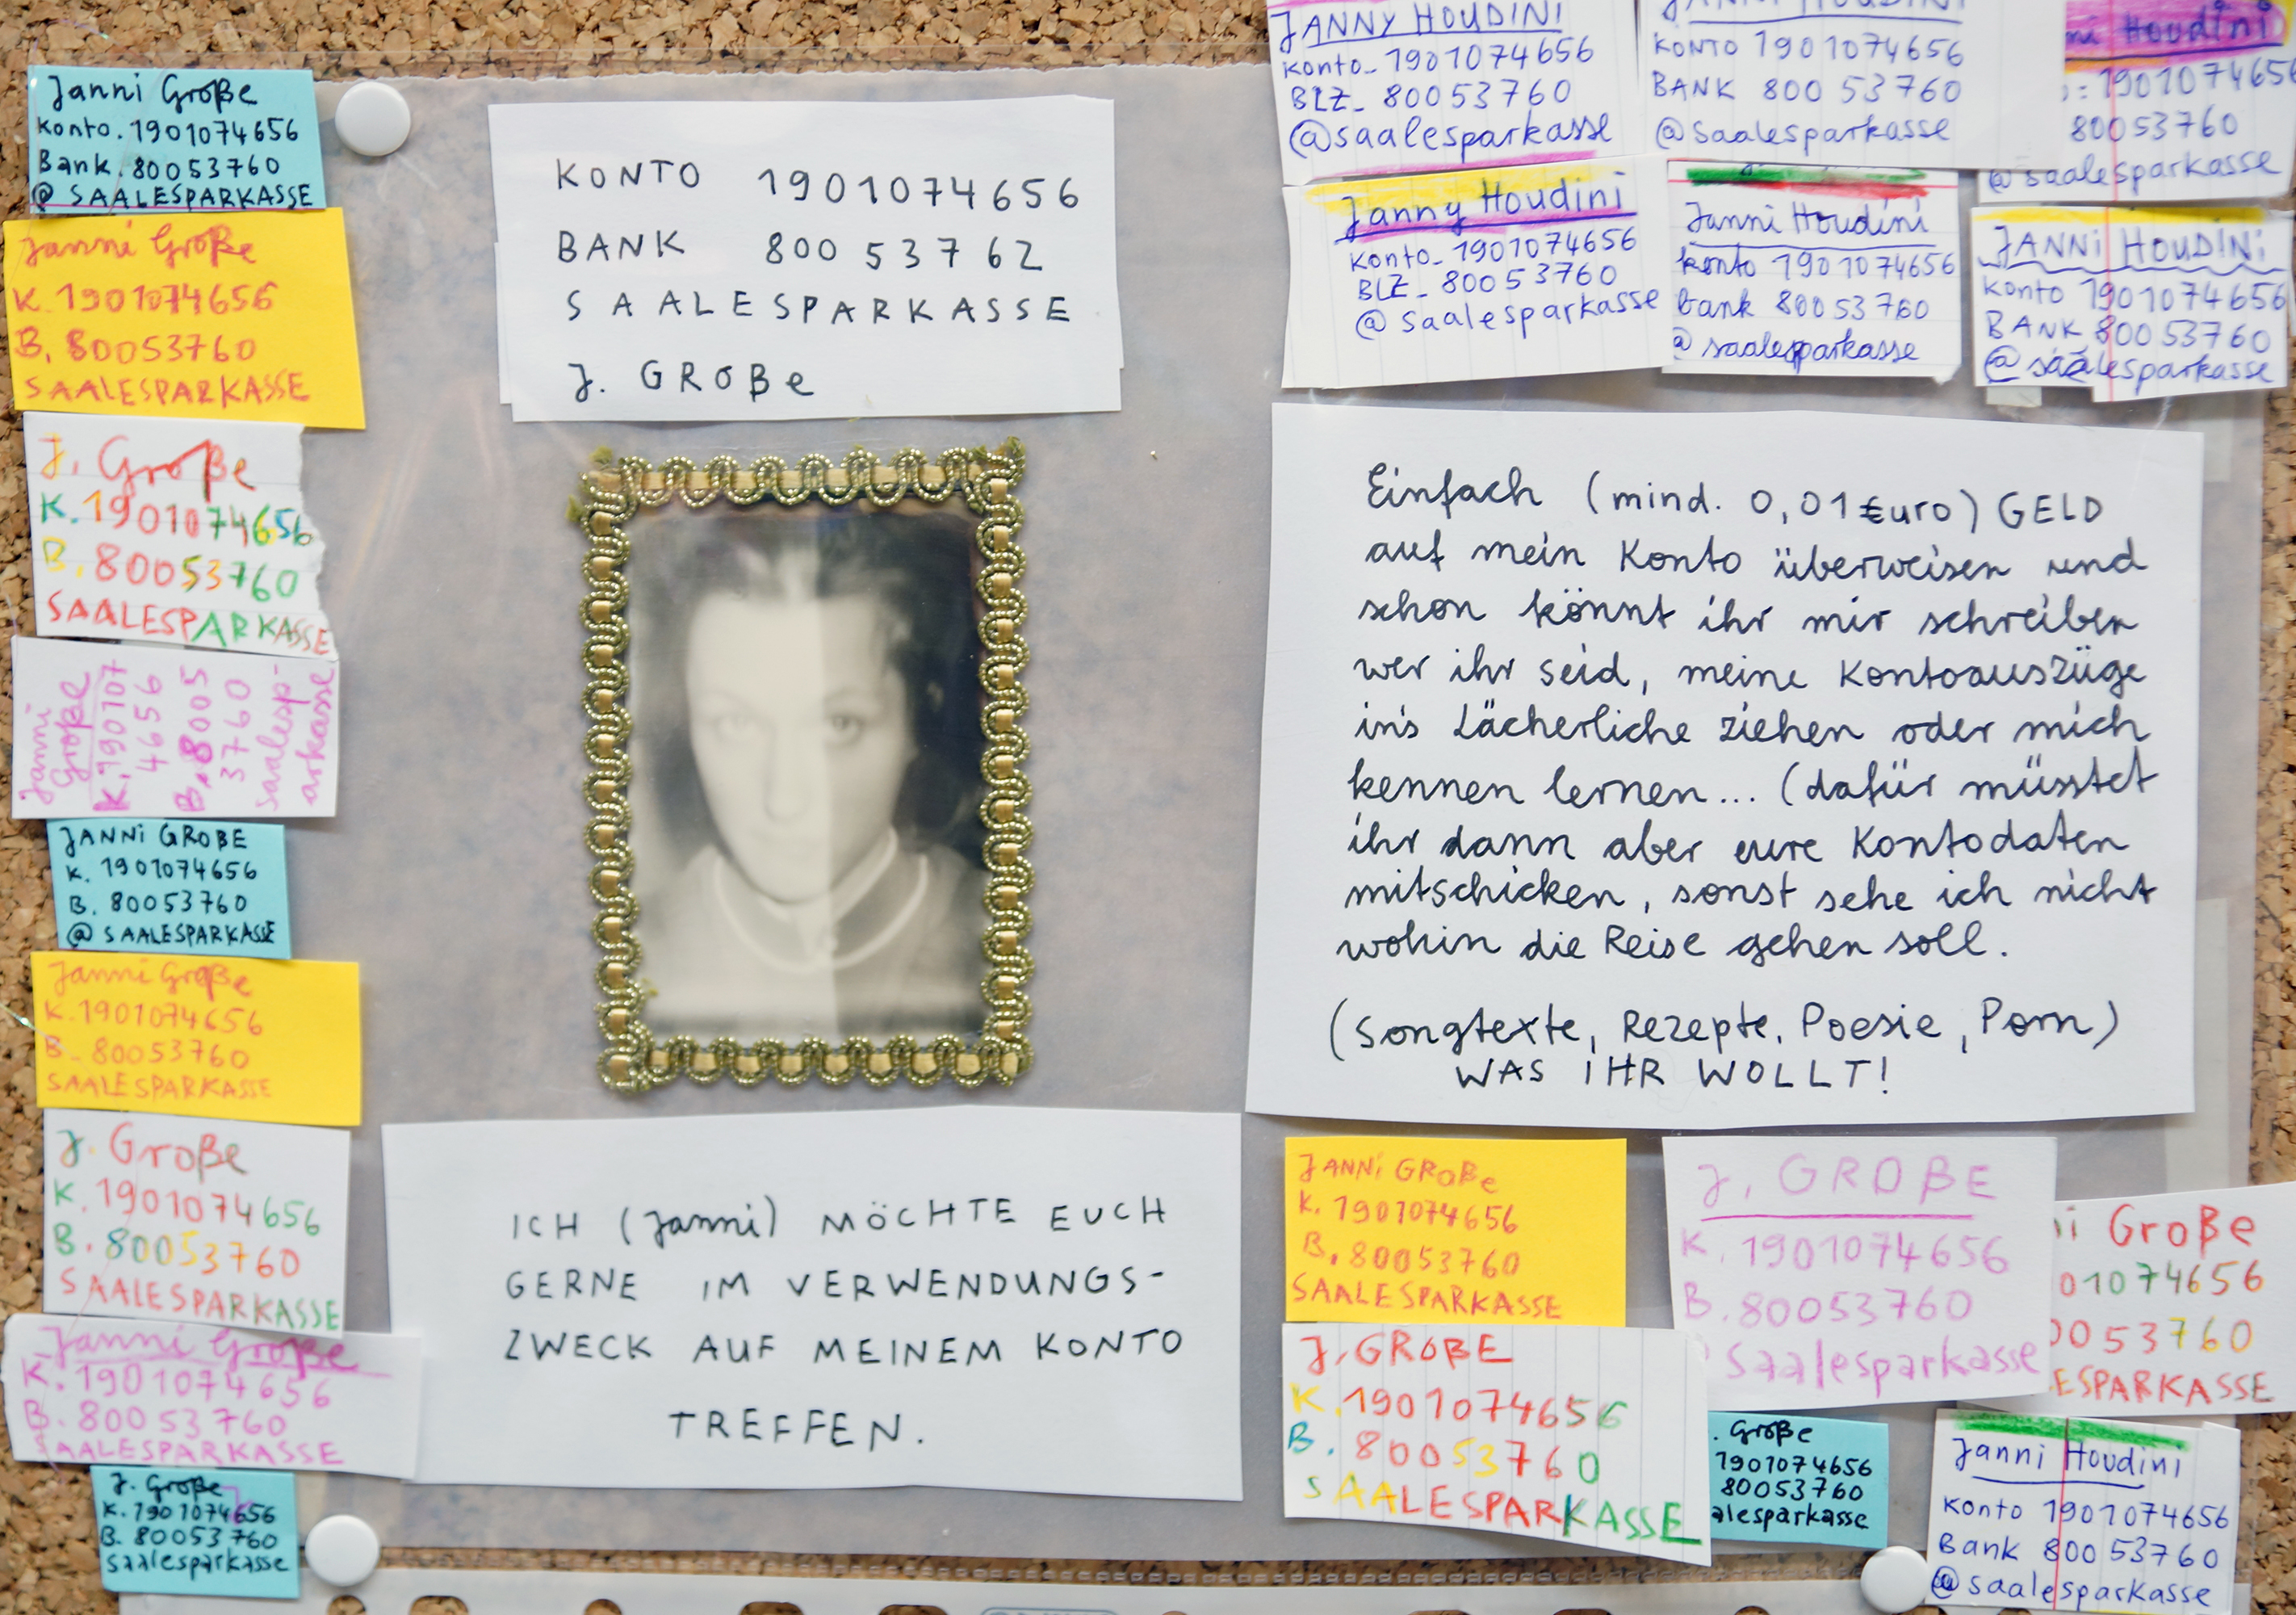 Janni Große
Konto. 1901074656
Bank. 80053760
@ SAALESPARKASSE
Janni Große
K. 1901074656
B. 80053760
SAALESPARKASSE
J. Große
K. 1901074656
B. 80053760
SAALESPARKASSE
Janni
Große
K. 190107
4656
B. 8005
3760
Saalesp-
arkasse
JANNi GROßE
K. 1901074656
B. 80053760
@ SAALESPARKASSE
Janni Große
K. 1901074656
B. 80053760
SAALESPARKASSE
J. Große
K. 1901074656
B. 80053760
SAALESPARKASSE
Janni Große
K. 1901074656
B. 80053760
SAALESPARKASSE
J. Große
K. 1901074656
B. 80053760
saalesparkasse
KONTO 1901074656
BANK 800 53762
SAALESPARKASSE
J. GROße
ICH (Janni) MÖCHTE EUCH
GERNE IM VERWENDUNGS-
ZWECK AUF MEINEM KONTO
TREFFEN.
JANNY HOUDINI
Konto_ 1901074656
BLZ_ 80053760
@saalesparkasse
JANNI HOUDINI
KONTO 1901074656
BANK 800 53760
@Saalesparkasse
ni Houdini
: 1901074656
80053760
@ saalesparkasse
Janny Houdini
Konto_ 1901074656
BLZ_ 80053760
@ Saalesparkasse
Janni Houdini
konto 1901074656
bank 80053760
@ saalesparkasse
JANNi HOUDiNi
Konto 1901074656
BANK 80053760
@ saalesparkasse
Einfach (mind. 0,01 €uro) GELD
auf mein Konto überweisen und
schon könnt ihr mir schreiben
wer ihr seid, meine Kontoauszüge
in's Lächerliche ziehen oder mich
kennen lernen... (dafür müsstet
ihr dann aber eure Kontodaten
mitschicken, sonst sehe ich nicht
wohin die Reise gehen soll.
(Songtexte, Rezepte, Poesie, Porn)
WAS IHR WOLLT!
JANNi GROße
K. 1901074656
B. 80053760
SAALESPARKASSE
J. GROßE
K. 1901074656
B. 80053760
Saalesparkasse
i Große
01074656
0053760
ESPARKASSE
J. GROßE
K. 1901074656
B. 80053760
SAALESPARKASSE
. Große
1901074656
80053760
alesparkasse
Janni Houdini
Konto 1901074656
Bank 80053760
@saalesparkasse